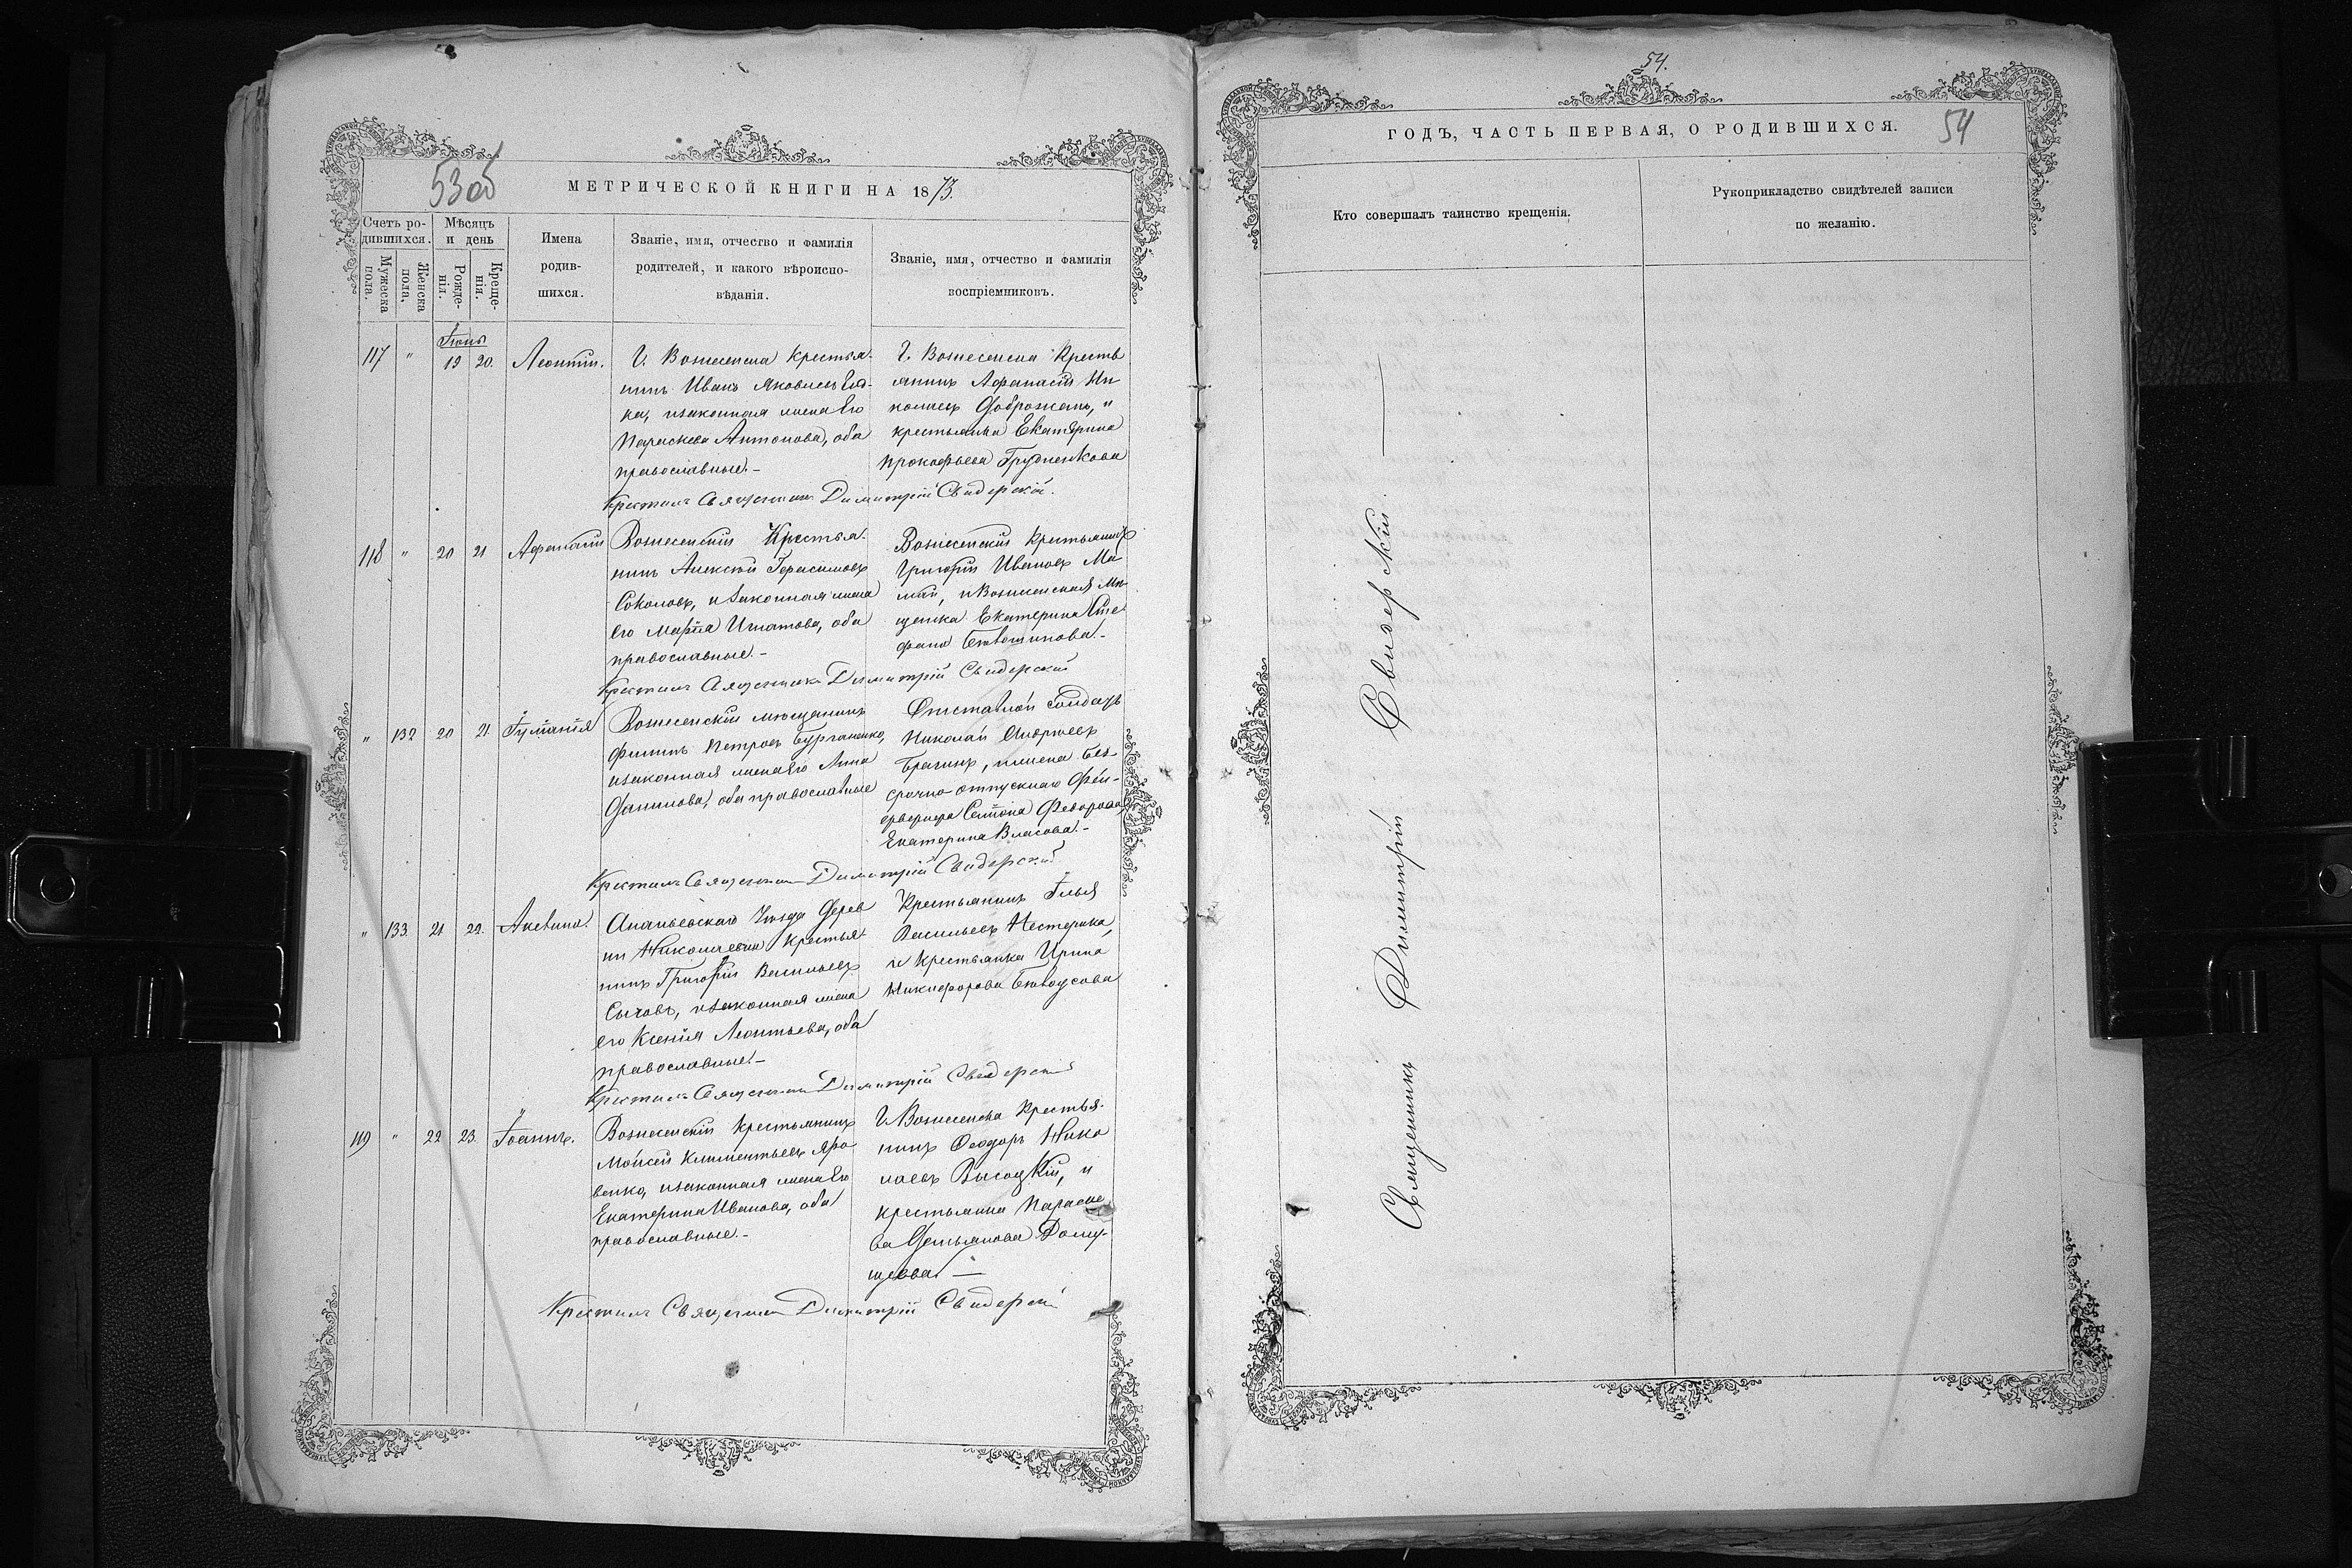 53 об
МЕТРИЧЕСКОЙ КНИГИ НА 1873.
Счетъ ро-
дившихся.
Мужеска
пола.
Женска
пола.
Мѣсяцъ
и день
Рожде-
нія.
Креще-
нія.
Имена
родив-
шихся.
Званіе, имя, отчество и фамилія
родителей, и какого вѣроиспо-
вѣданія.
Званіе, имя, отчество и фамилія
воспріемниковъ.
Іюнь
117 " 19 20. Леонтій.
Г. Вознесенска крестья-
нинъ Иванъ Яковлевъ
ка, и законная жена его
Параскева Антонова, оба
православные.-
Г. Вознесенска Кресть
янинъ Афанасій Ни
колаевъ Доброженъ, и
крестьянка Екатерина
Прокофьева Грудненкова
Крестилъ Священникъ Димитрій Свидерскій.
118 " 20 21 Афанасій
Вознесенскій Крестья-
нинъ Алексѣй Герасимовъ
Соколовъ, и законная жена
его Марѳа Игнатова, оба
православные.-
Вознесенскій крестьянинъ
Григорій Ивановъ Ма
лый, и Вознесенская Мѣ
щанка Екатерина Сте-
фанова
Крестилъ Священникъ Димитрій Свидерскій
" 132 20 21 Іуліанія
Вознесенскій мѣщанинъ
Филиппъ Петровъ Бурлаченко,
и законная жена его Анна
Данилова, оба православные
Отставной солдатъ
Николай Андреевъ
Брагинъ, и жена Без-
срочно-отпускнаго Фей-
ерверкера Семіона Феодорова
Екатерина Власова.-
Крестилъ Священникъ Димитрій Свидерскій
" 133 21 22. Акилина.
Ананьевскаго Уѣзда Дерев
ни Николаевки крестья-
нинъ Григорій Васильевъ
Сычовъ, и законная жена
его Ксенія Леонтьева, оба
православные.-
Крестьянинъ Илья
Васильевъ Нестерика,
и Крестьянка Ирина
Никифорова Бѣлоусова
Крестилъ Священникъ Димитрій Свидерскій
119 " 22 23. Іоаннъ.
Вознесенскій крестьянинъ
Моисей Климентьевъ Яро
венко, и законная жена его
Екатерина Иванова, оба
православные.-
Г. Вознесенска Крестья-
нинъ Феодоръ Нико
лаевъ Высоцкій, и
крестьянка Параске
ва Демьянова
Крестилъ Священникъ Димитрій Свидерскій
54.
ГОДЪ, ЧАСТЬ ПЕРВАЯ, О РОДИВШИХСЯ.
54
Кто совершалъ таинство крещенія.
Рукоприкладство свидѣтелей записи
по желанію.
Священникъ Димитрій Свидерскій.